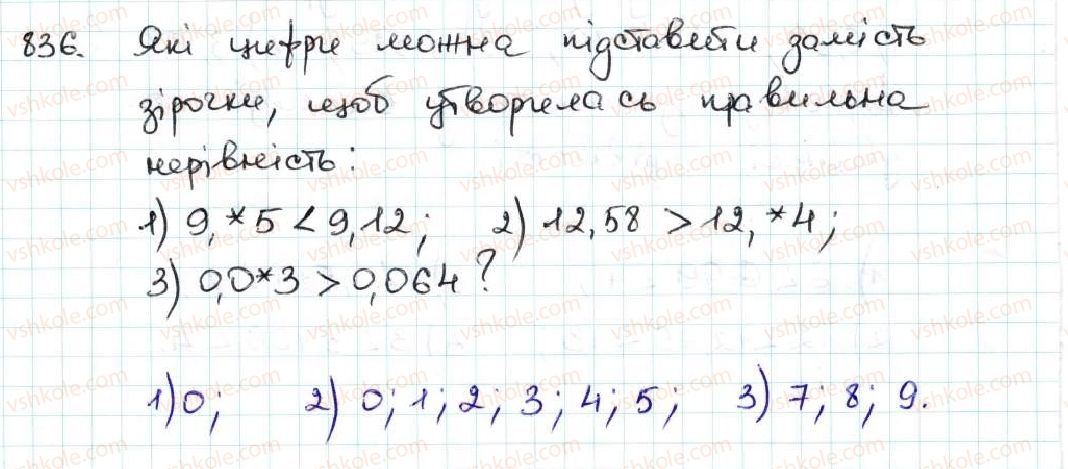 836. Які цифри можна підставити замість
зірочки, щоб утворилась правильна
нерівність:
1) 9,*5 < 9,12; 2) 12,58 > 12,*4;
3) 0,0*3 > 0,064?
1) 0; 2) 0; 1; 2; 3; 4; 5; 3) 7; 8; 9.